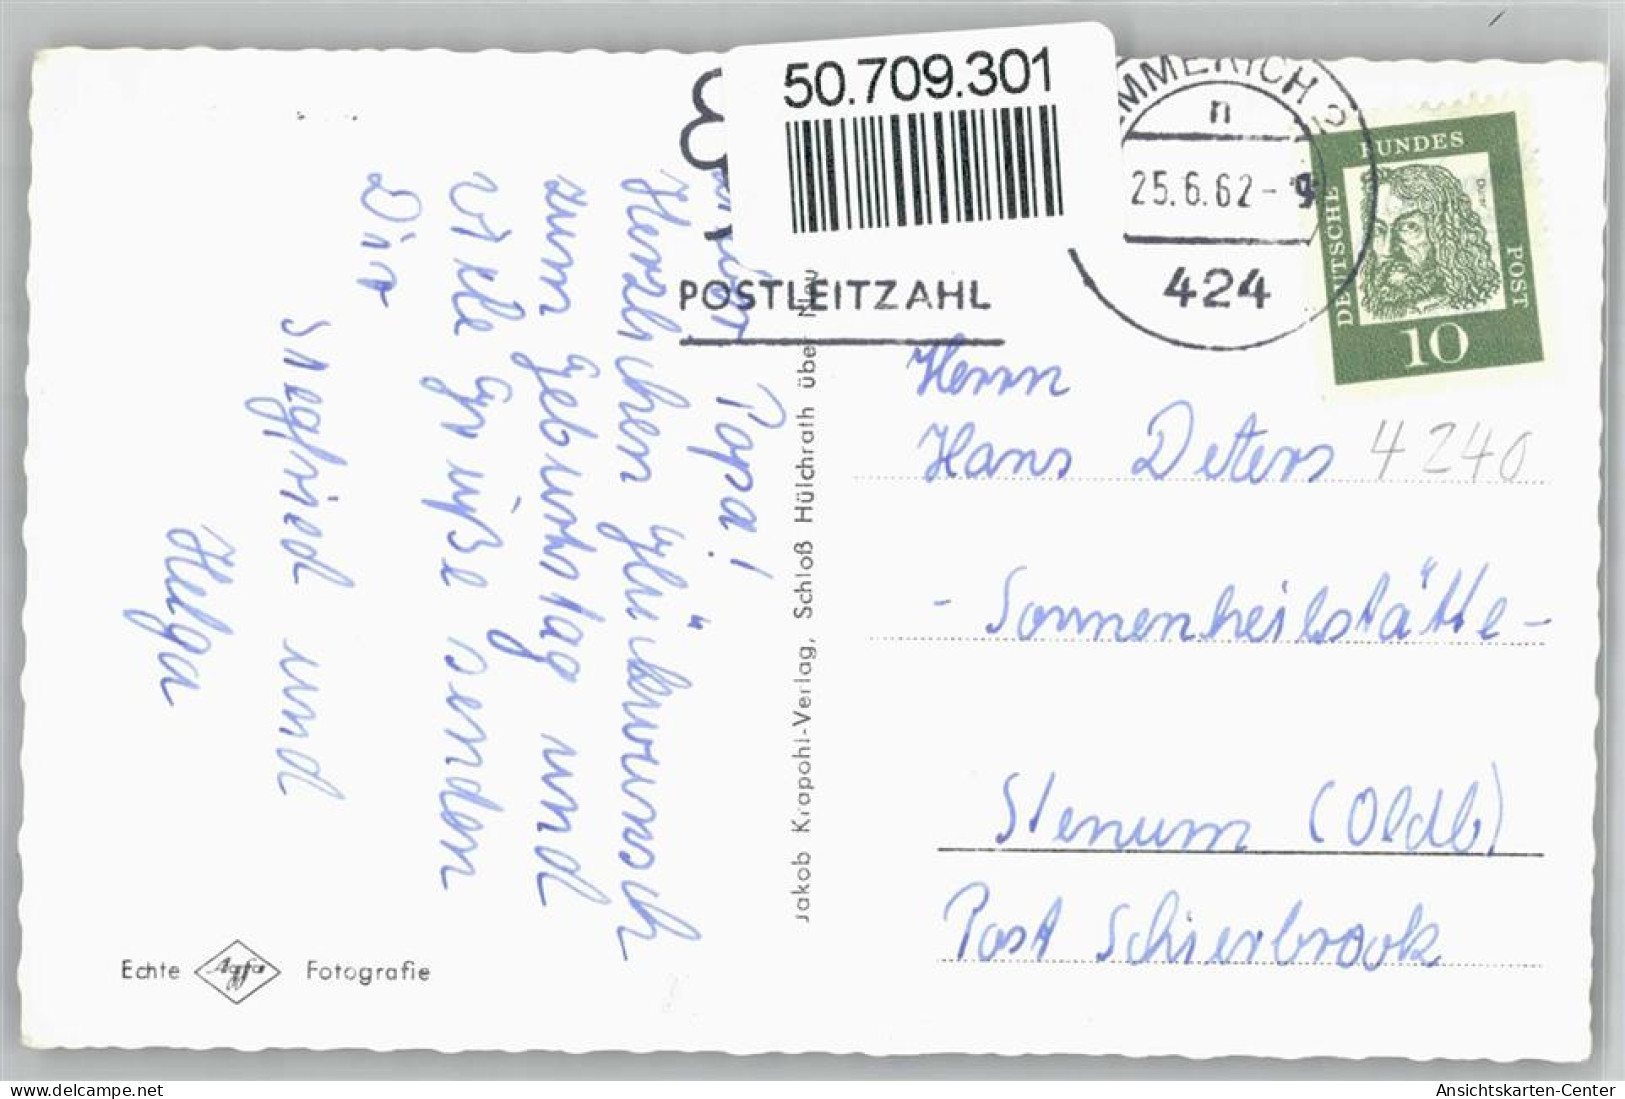 50.709.301
EMMERICH 2
n
25.6.62-9
424
POSTLEITZAHL
DEUTSCHE
BUNDES
POST
Dürer
10
Papa!
Herzlichen Glückwunsch
zum Geburtstag und
viele Grüße senden
Dir
Siegfried und
Helga
Jakob Krapohl-Verlag, Schloß Hülchrath über Neu
Herrn
Hans Deters 4240
- Sonnenheilstätte -
Stenum (Oldb)
Post Schierbrook
Echte Agfa Fotografie
www.delcampe.net
Ansichtskarten-Center